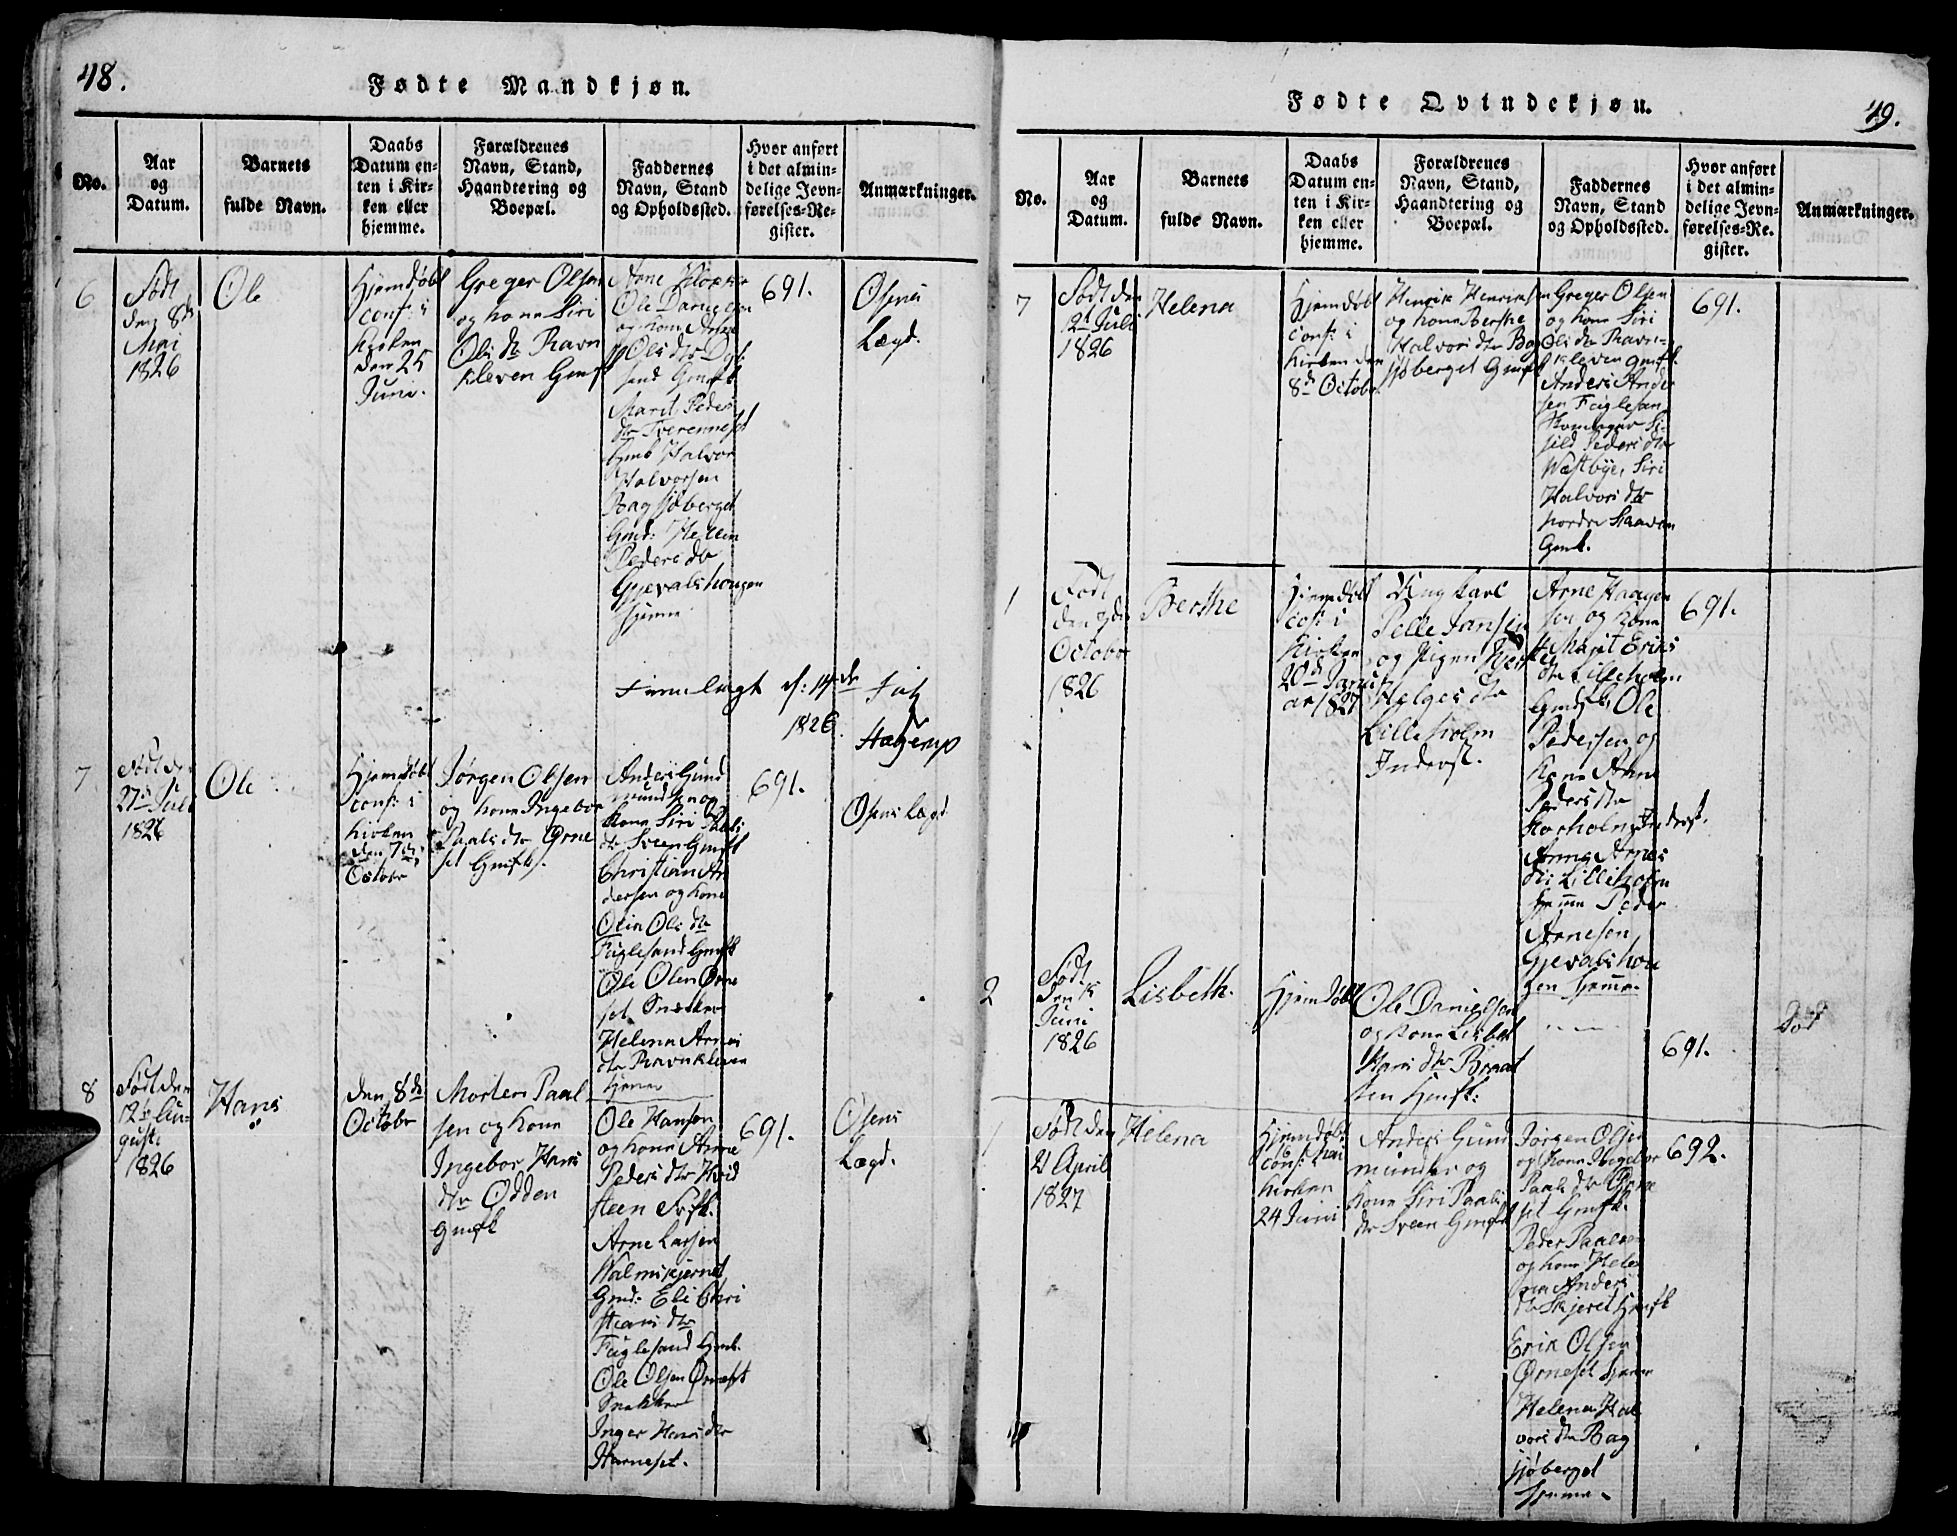 48.
Fødte Mandkjøn.
No.
Aar
og
Datum.
Barnets
fulde Navn.
Daabs
Datum en-
ten i Kir-
ken eller
hjemme.
Forældrenes
Navn, Stand,
Haandtering og
Boepæl.
Faddernes
Navn, Stand
og Opholdssted.
Hvor anført
i det almin-
delige Jevn-
førelses-Re-
gister.
Anmærkninger.
6
Født
den 8de
Mai
1826
Ole
Hjemdøbt
conf: i
Kirken
den 25
Juni.
Greger Olsen
og kone Siri
Olsdtr Ravn
kleven Gmfk
Arne
Ole Danielsen
og kone Anne
Olsdtr
Marit Peders
dtr Tverenneset
Gmb Halvor
Halvorsen
Bagsjøberget
Gmd: Helene
Pedersdtr
Gjevalshougen
hjemme
691.
Osens
Lægd.
Fremlagt d: 14de Juli
1826.
Hagerup
7
Født den
27de Juli
1826
Ole
Hjemdøbt
conf: i
Kirken
den 7de
October
Jørgen Olsen
og kone Ingebor
Paalsdtr Ørne
set Gmfk.
Anders Gund
mundsen og
kone Siri Paals
dtr Sveen Gmfk
Christian An
dersen og kone
Olia Olsdtr
Fuglesand Gmfk
Ole Olsen Ørne
set Snekker
Helena Arnes
dtr Ravnkleven
hjemme
691.
Osens Lægd
8
Født den
12te Au-
gusti
1826
Hans
den 8de
October
Morten Paal
sen og kone
Ingebor Hans
dtr Odden
Gmfk
Ole Hansen
og kone Anne
Pedersdtr Hvid
steen Slfk.
Arne Larsen
Valmskjernet
Gmd: Eli Chri
stiansdtr
Fuglesand Gmb.
Ole Olsen Ørneset
Snekker
Inger Hansdtr
Harneset.
691.
Osens
Lægd.
49.
Fødte Qvindekjøn.
No.
Aar
og
Datum.
Barnets
fulde Navn.
Daabs
Datum en-
ten i Kir-
ken eller
hjemme.
Forældrenes
Navn, Stand,
Haandtering og
Boepæl.
Faddernes
Navn, Stand
og Opholdssted.
Hvor anført
i det almin-
delige Jevn-
førelses-Re-
gister.
Anmærkninger.
7
Født den
12t Juli
1826
Helena
Hjemdøbt
conf: i
Kirken den
8de October
Henrik Henriksen
og kone Berthe
Halvorsdtr Bag
sjøberget Gmfk
Greger Olsen
og kone Siri
Olsdtr Ravn-
kleven Gmfk.
Anders Ander
sen Fuglesan
Si
sild Pedersdtr
Westbye, Siri
Halvorsdtr
nordre Staaven
Gmb.
691.
1
Født
den 7de
October
1826
Berthe
Hjemdøbt
cof: i
Kirken
20de Janu
ar 1827
Ungkarl
Pelle Jansen
og Pigen
Helgesdtr
Lilleholm
Inderst.
Arne Haagen
sen og kone
Marit Eriks
dtr Lilleholm
Gmfk Ole
Pedersen og
Kone Anne
Pedersdtr
Korsholm Inderst.
Anne Arnes
dtr Lilleholm
hjemme Peder
Arnesen
Gjevalshou
gen hjemme.
691.
2
Født
den
Juni
1826
Lisbeth.
Hjemdøbt
Ole Danielsen
og kone Lisbet
Hansdtr Braat
ten Gmfk:
691.
Død
1
Født den
21 April
1827
Helena
Hjemdøbt
16 Mai
conf:
Kirken
24 Juni
Anders Gund
mundsen og
kone Siri Paals
dtr Sveen Gmfk
Jørgen Olsen
og kone Ingebor
Paalsdtr Ørne
set Gmfk.
Peder Paalsen
og kone Hele
na Anders
dtr Skjeret Gmfk
Erik Olsen
Ørneset hjemme
Helena Hal
vorsdtr Bag
sjøberget
hjemme.
692.